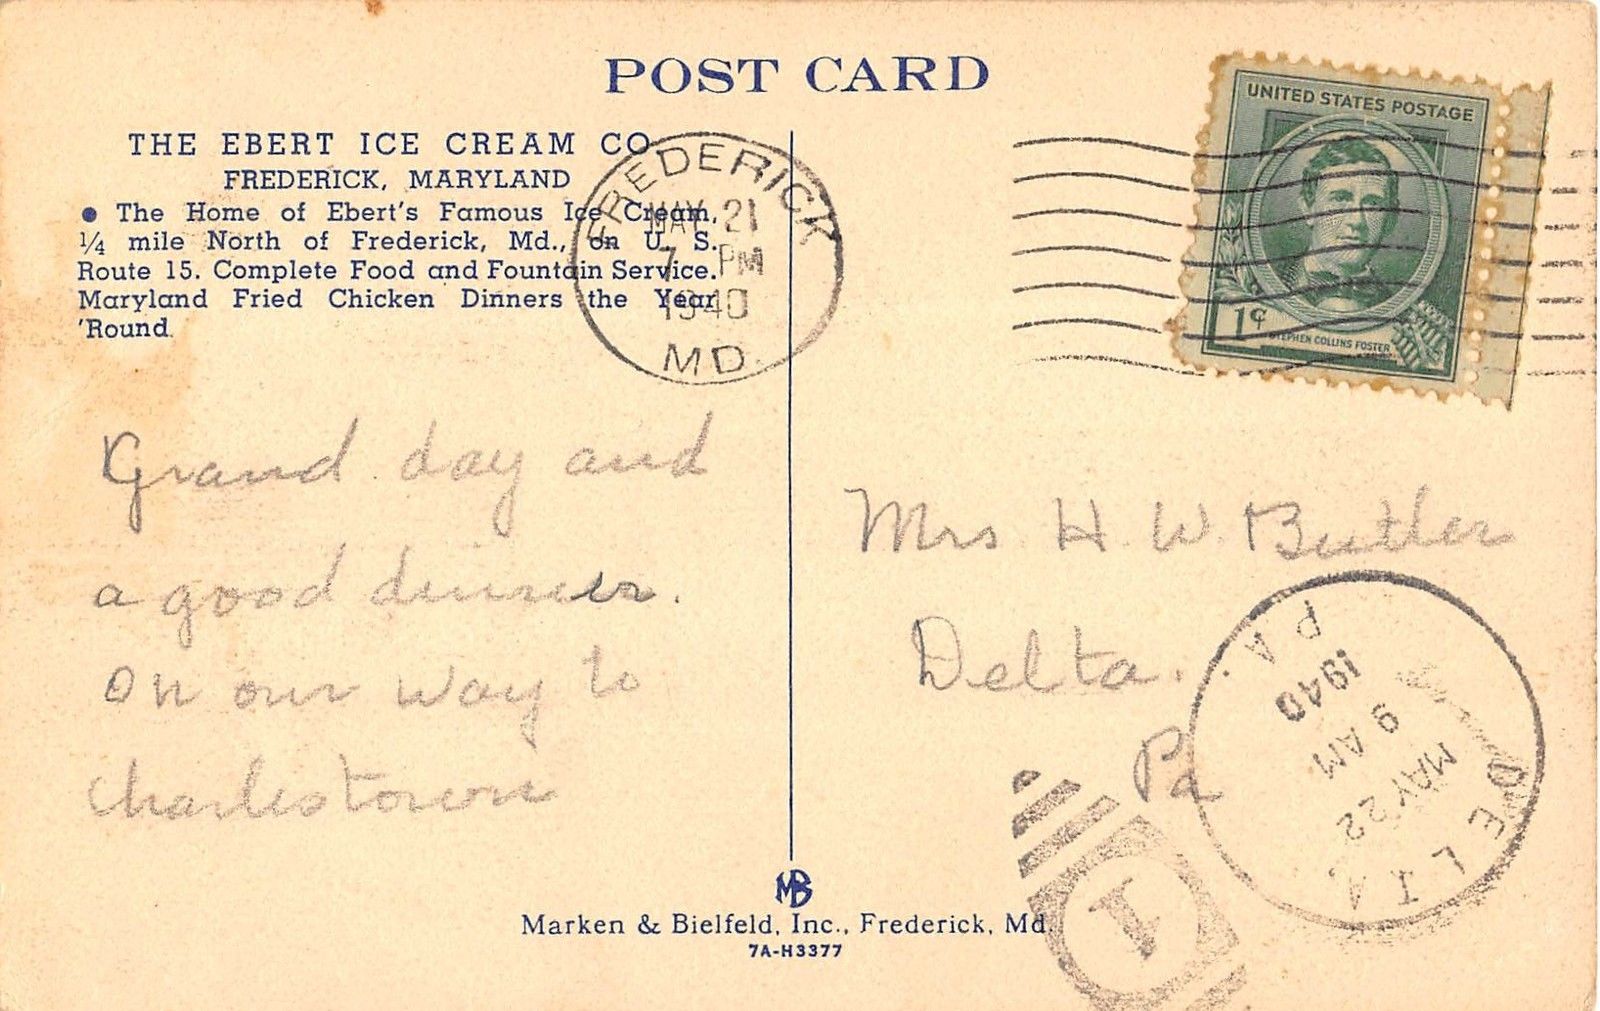 POST CARD
THE EBERT ICE CREAM CO
FREDERICK, MARYLAND
• The Home of Ebert's Famous Ice Cream,
1/4 mile North of Frederick, Md., on U. S.
Route 15. Complete Food and Fountain Service.
Maryland Fried Chicken Dinners the Year
'Round.
FREDERICK
MAY 21
7 PM
1940
MD.
UNITED STATES POSTAGE
1¢
STEPHEN COLLINS FOSTER
Grand day and
a good dinner.
On our way to
Charlestown
Mrs H. W. Butler
Delta.
Pa
DELTA.
MAY 22
9 AM
1940
PA.
1
MB
Marken & Bielfeld, Inc., Frederick, Md.
7A-H3377